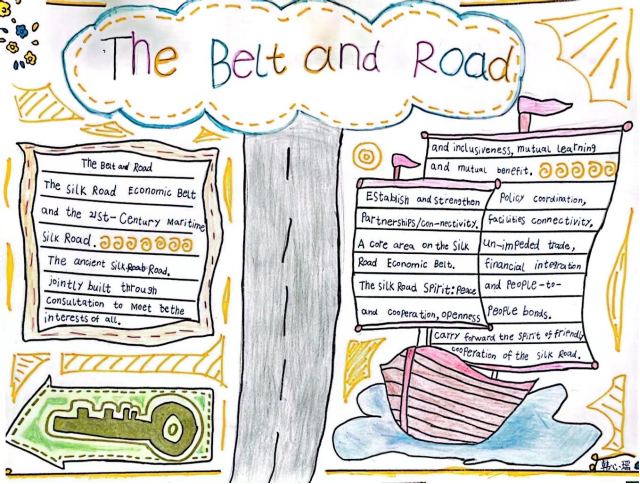 The Belt and Road
The Belt and Road
The Silk Road Economic Belt
and the 21st-Century Maritime
Silk Road.
The ancient Silk Road Road,
jointly built through
consultation to meet bethe
interests of all.
and inclusiveness, mutual learning
and mutual benefit.
Establish and strengthen
Partnerships/con-nectivity.
A core area on the Silk
Road Economic Belt.
The silk Road Spirit: Peace
and cooperation, openness
Policy coordination,
facilities connectivity.
un-impeded trade,
financial integration
and people-to-
people bonds.
carry forward the spirit of friendly
cooperation of the Silk Road.
韩心瑶